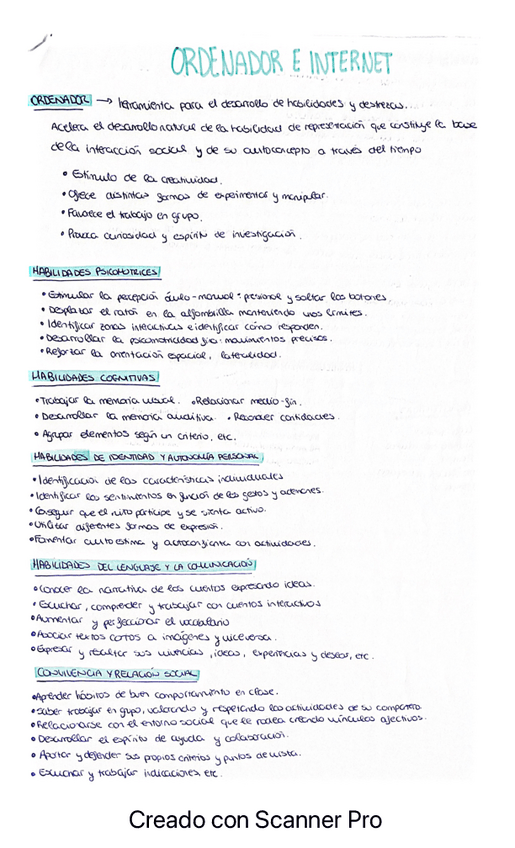 ORDENADOR E INTERNET
ORDENADOR → herramienta para el desarrollo de habilidades y destrezas...
Acelera el desarrollo natural de la habilidad de representación que constituye la base
de la interacción social y de su autoconcepto a través del tiempo
• Estímulo de la creatividad.
• Ofrece distintas formas de experimentar y manipular.
• Favorece el trabajo en grupo.
• Provoca curiosidad y espíritu de investigación.
HABILIDADES PSICOMOTRICES
• Estimular la percepción óculo-manual: presionar y soltar los botones.
• Desplazar el ratón en la alfombrilla manteniendo unos límites.
• Identificar zonas interactivas e identificar cómo responden.
• Desarrollar la psicomotricidad fina: movimientos precisos.
• Reforzar la orientación espacial, lateralidad.
HABILIDADES COGNITIVAS
• Trabajar la memoria visual. • Relacionar medio-fin.
• Desarrollar la memoria auditiva. • Reconocer cantidades.
• Agrupar elementos según un criterio, etc.
HABILIDADES DE IDENTIDAD Y AUTONOMÍA PERSONAL
• Identificación de las características individuales
• Identificar los sentimientos en función de los gestos y acciones.
• Conseguir que el niño participe y se sienta activo.
• Utilizar diferentes formas de expresión.
• Fomentar autoestima y autoconfianza con actividades.
HABILIDADES DEL LENGUAJE Y LA COMUNICACIÓN
• Conocer la narrativa de los cuentos expresando ideas.
• Escuchar, comprender y trabajar con cuentos interactivos
• Aumentar y perfeccionar el vocabulario
• Asociar textos cortos a imágenes y viceversa.
• Expresar y relatar sus vivencias, ideas, experiencias y deseos, etc.
CONVIVENCIA Y RELACIÓN SOCIAL
• Aprender hábitos de buen comportamiento en clase.
• Saber trabajar en grupo, valorando y respetando las actividades de su compañero.
• Relacionarse con el entorno social que le rodea creando vínculos afectivos.
• Desarrollar el espíritu de ayuda y colaboración.
• Aportar y defender sus propios criterios y puntos de vista.
• Escuchar y trabajar indicaciones, etc.
Creado con Scanner Pro